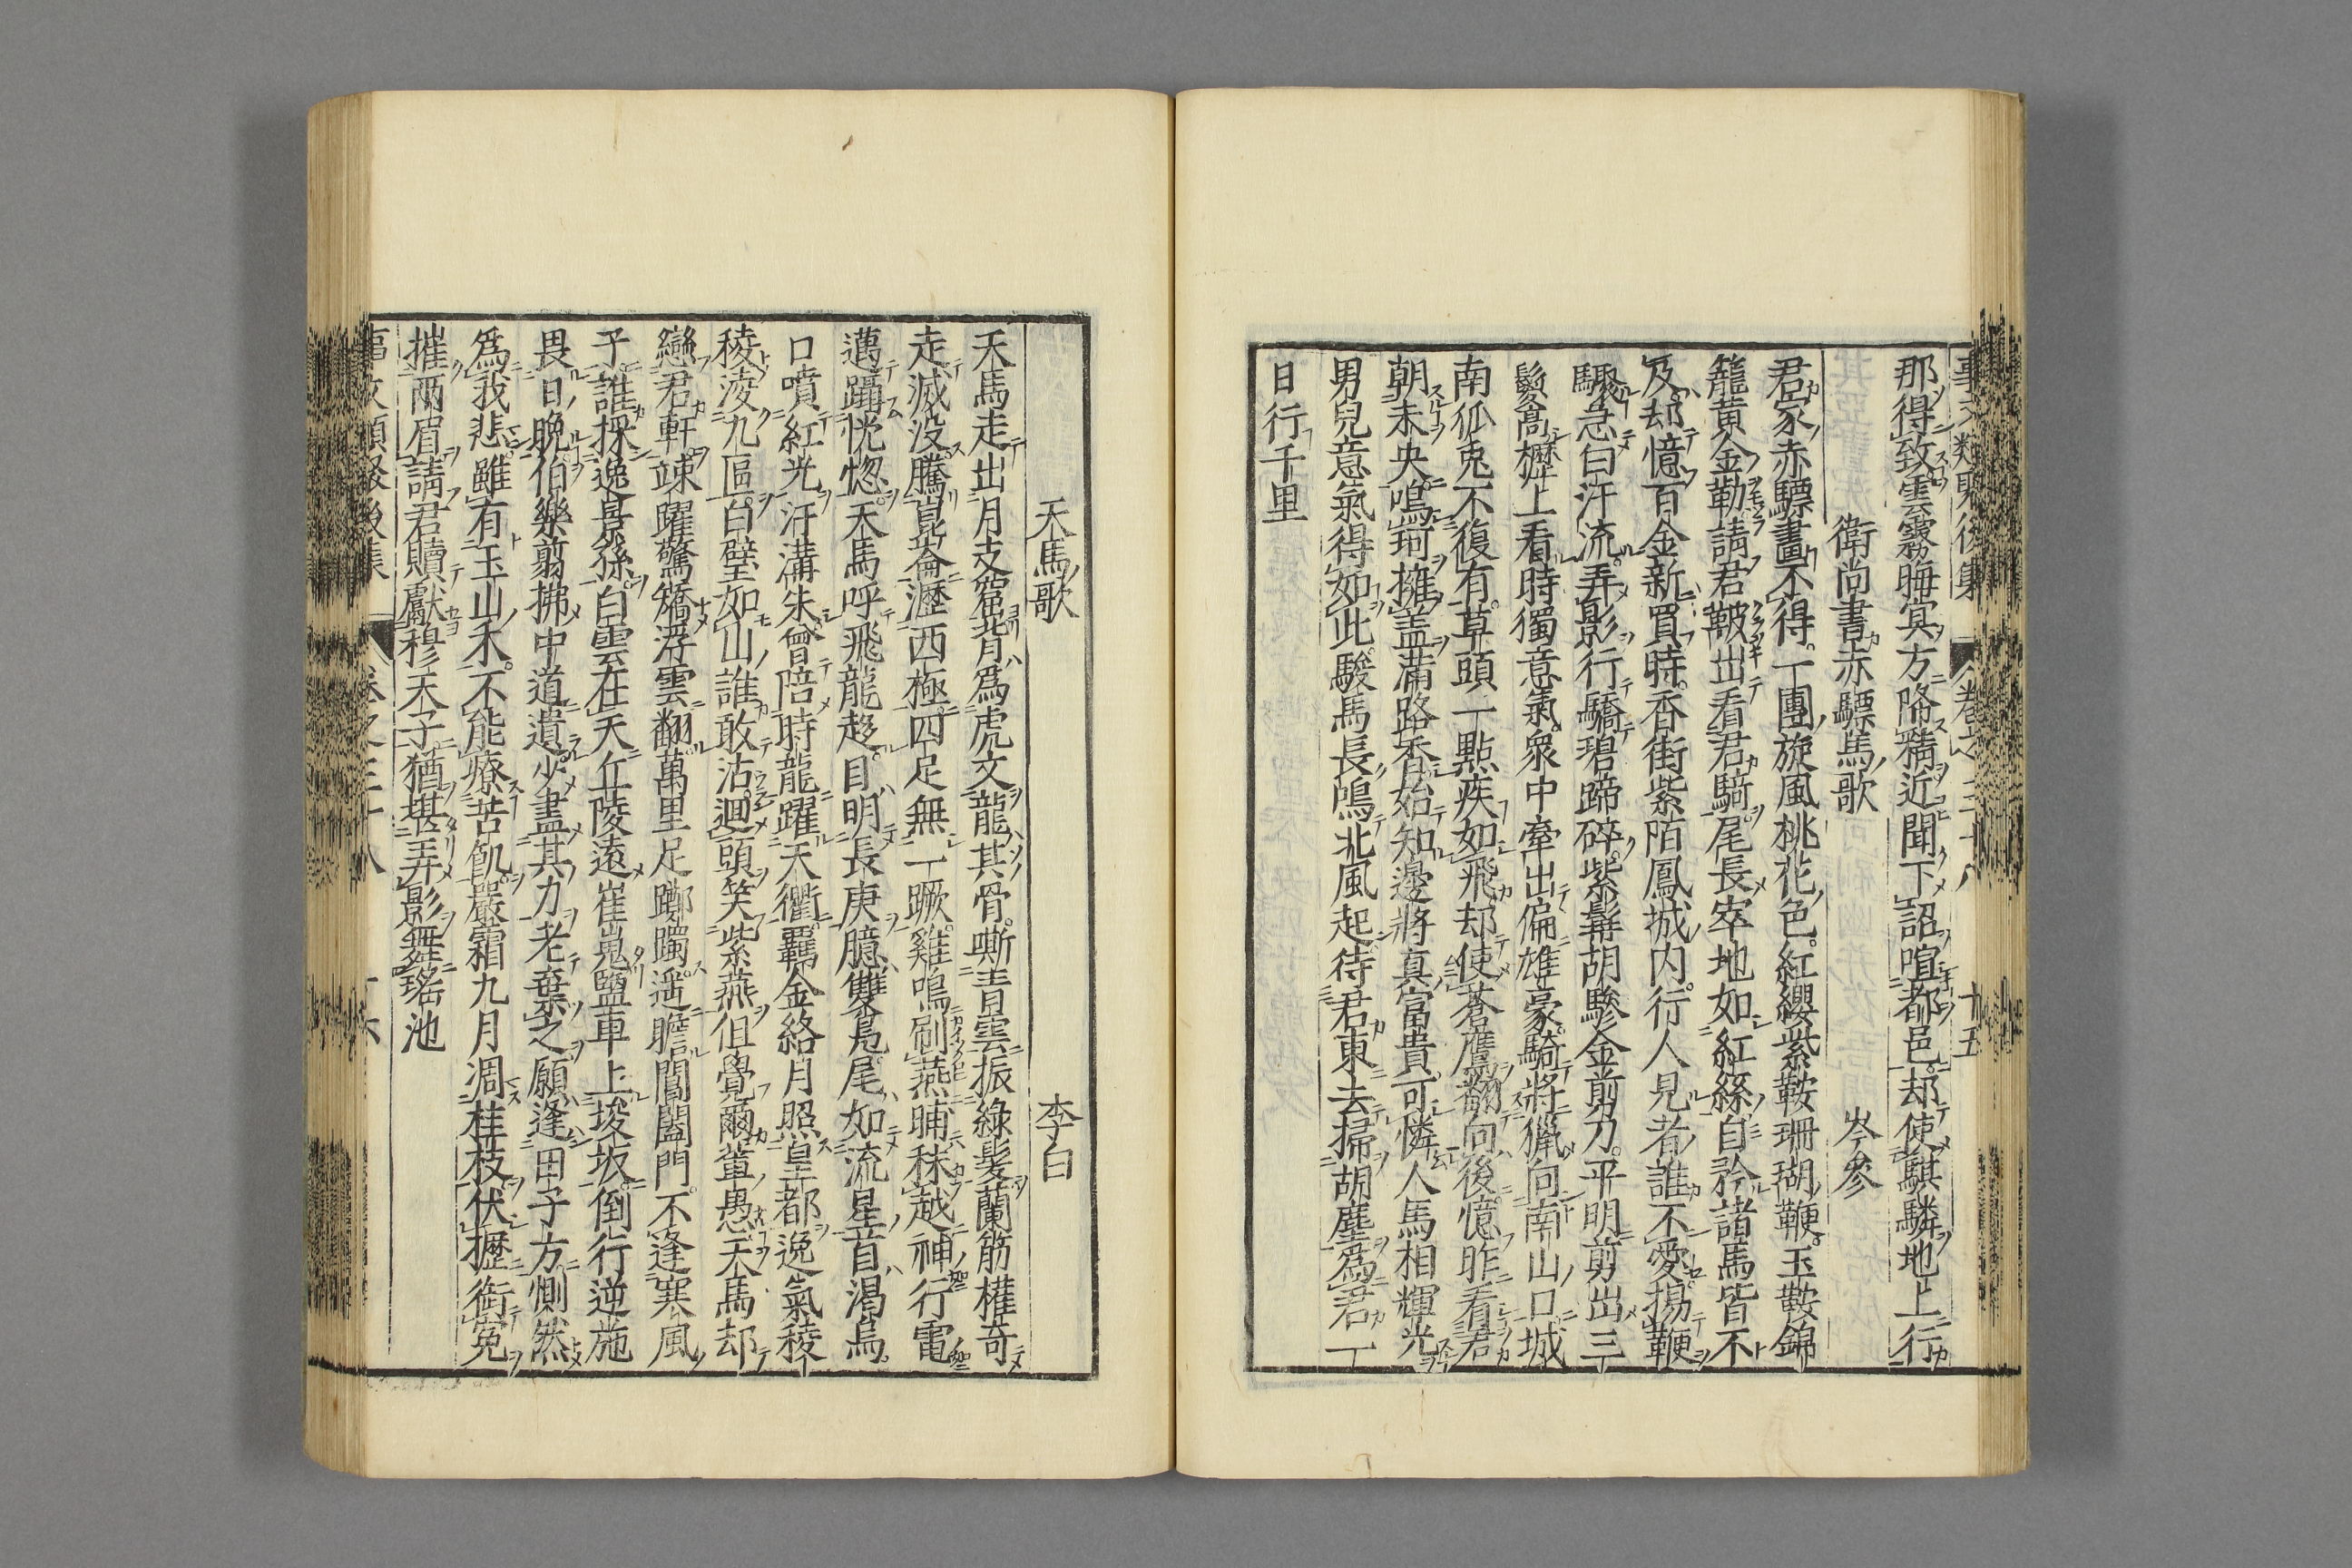 事文類聚後集 卷之三十八 十五
那得致雲霧晦冥方降精近聞下詔喧都邑却使騏驎地上行
衛尚書赤驃馬歌 岑參
君家赤驃畫不得一團旋風桃花色紅纓紫鞚珊瑚鞭玉鞍錦
韉黃金勒請君鞁出看君騎尾長窣地如紅絲自矜諸馬皆不
及却憶百金新買時香街紫陌鳳城内行人見者誰不愛揚鞭
驟急白汗流弄影行驕碧蹄碎紫髯胡騣金剪刀平明剪出三
鬉高櫪上看時獨意氣衆中牽出偏雄豪騎將獵向南山口城
南狐兎不復有草頭一點疾如飛却使蒼鷹翻向後憶昨看君
朝未央鳴珂擁蓋滿路香始知邊將真富貴可憐人馬相輝光
男兒意氣得如此駿馬長鳴北風起待君東去掃胡塵爲君一
日行千里
天馬歌 李白
天馬走出月支窟背爲虎文龍其骨嘶青雲振綠髮蘭筋權奇
走滅没騰崑崙瀝西極四足無一蹶雞鳴刷燕晡秣越神行電
邁躡恍惚天馬呼飛龍趍目明長庚臆雙鳧尾如流星首渴烏
口噴紅光汗溝朱曾陪時龍躍天衢羈金絡月照皇都逸氣稜
稜淩九區白璧如山誰敢沽迴頭笑紫燕但覺爾輩愚天馬却
戀君軒竦躍驚矯浮雲翻萬里足躑躅遥瞻閶闔門不逢寒風
子誰採逸景孫白雲在天丘陵遠崔嵬鹽車上埈坂倒行逆施
畏日晩伯樂翦拂中道遺少盡其力老棄之願逢田子方惻然
爲我悲雖有玉山禾不能療苦飢嚴霜九月凋桂枝伏櫪銜寃
摧兩眉請君贖獻穆天子猶堪弄影舞瑤池
事文類聚後集 卷之三十八 十六